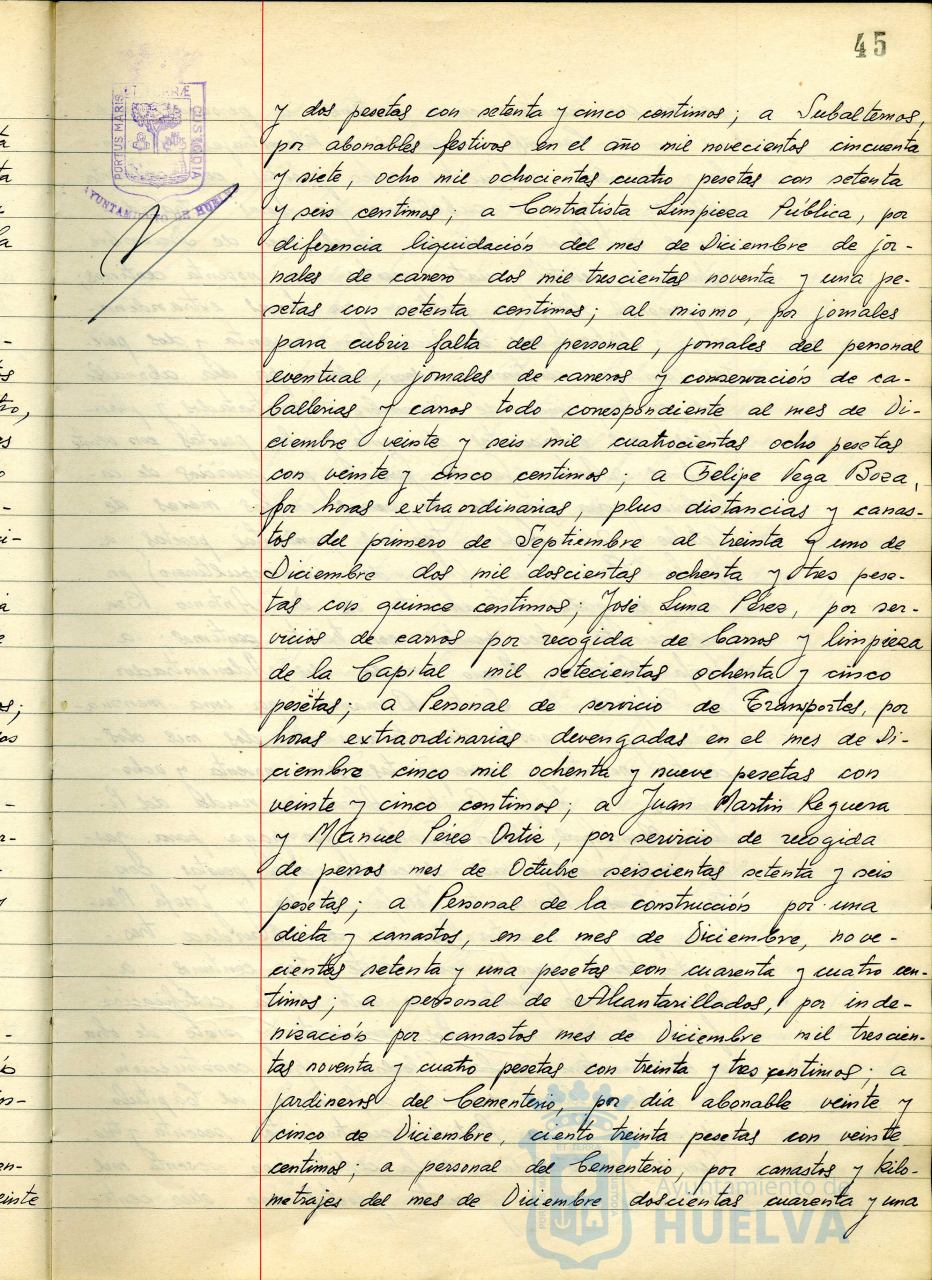 45
ET TERRÆ
PORTUS MARIS
CUSTODIA
AYUNTAMIENTO DE HUELVA
y dos pesetas con setenta y cinco centimos; a Subalternos,
por abonables festivos en el año mil novecientos cincuenta
y siete, ocho mil ochocientas cuatro pesetas con setenta
y seis centimos; a Contratista Limpieza Pública, por
diferencia liquidación del mes de Diciembre de jor-
nales de carrero dos mil trescientas noventa y una pe-
setas con setenta centimos; al mismo, por jornales
para cubrir falta del personal, jornales del personal
eventual, jornales de carreros y conservación de ca-
ballerias y carros todo correspondiente al mes de Di-
ciembre veinte y seis mil cuatrocientas ocho pesetas
con veinte y cinco centimos; a Felipe Vega Boza,
por horas extraordinarias, plus distancias y canas-
tos del primero de Septiembre al treinta y uno de
Diciembre dos mil doscientas ochenta y tres pese-
tas con quince centimos; José Luna Pérez, por ser-
vicios de carros por recogida de barros y limpieza
de la Capital mil setecientas ochenta y cinco
pesetas; a Personal de servicio de Transportes, por
horas extraordinarias devengadas en el mes de Di-
ciembre cinco mil ochenta y nueve pesetas con
veinte y cinco centimos; a Juan Martin Reguera
y Manuel Pérez Ortiz, por servicio de recogida
de perros mes de Octubre seiscientas setenta y seis
pesetas; a Personal de la construcción por una
dieta y canastos, en el mes de Diciembre, nove-
cientas setenta y una pesetas con cuarenta y cuatro cen-
timos; a personal de Alcantarillados, por inde-
nización por canastos mes de Diciembre mil trescien-
tas noventa y cuatro pesetas con treinta y tres centimos; a
jardineros del Cementerio, por día abonable veinte y
cinco de Diciembre, ciento treinta pesetas con veinte
centimos; a personal del Cementerio, por canastos y kilo-
metrajes del mes de Diciembre doscientas cuarenta y una
Ayuntamiento de
HUELVA